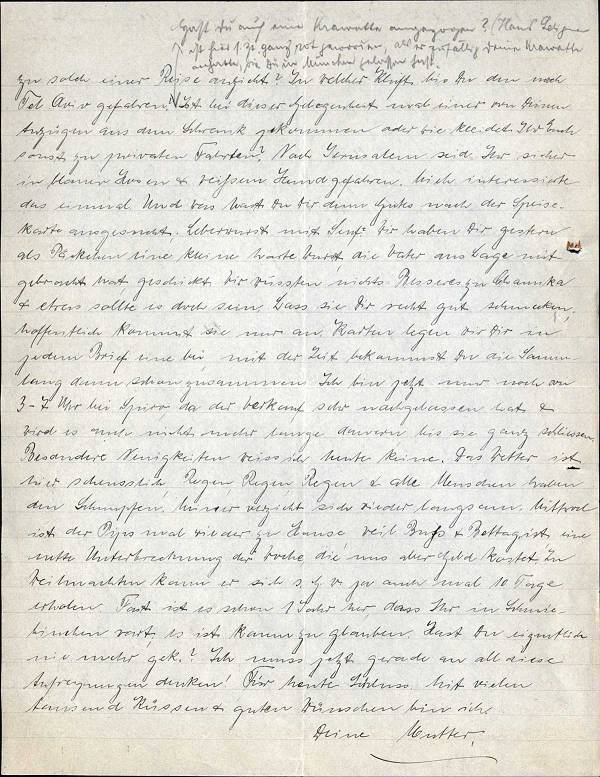 Hast Du auch eine Krawatte angezogen? (Hans
ist hier ganz rot geworden, als er zufällig Deine Krawatte
die Du in München gelassen hast.
zu solch einer Reise anzieht? In welcher Kluft bis Du den nach
Tel Aviv gefahren? Ist bei dieser Gelegenheit mal einer von Deinen
Anzügen aus dem Schrank gekommen oder wie kleidet Ihr Euch
sonst zu privaten Fahrten? Nach Jerusalem seid Ihr sicher
in blauer Hosen & weißem Hemd gefahren. Mich interessierte
das einmal. Und was hast Du Dir denn Gutes nach der Speise-
karte ausgesucht, Leberwurst mit Senf? Wir haben Dir gestern
als Päckchen eine kleine harte Wurst, die Vater aus Lage mit
gebracht hat geschickt wir wussten nichts Besseres zu Chanuka
& etwas sollte es doch sein. Lass sie Dir recht gut schmecken,
hoffentlich kommt sie nur an. Karten legen wir Dir in
jedem Brief eine bei, mit der Zeit bekommst Du die Samm-
lung dann schon zusammen. Ich bin jetzt nur noch von
3-7 Uhr bei Spiro da der Verkauf sehr nachgelassen hat &
wird es auch nicht mehr lange dauern bis sie ganz schliessen.
Besondere Neuigkeiten weiss ich heute keine. Das Wetter ist
hier scheusslich, Regen, Regen, Regen & alle Menschen haben
den Schnupfen, meiner verzieht sich wieder langsam. Mittwoch
ist der Paps mal wieder zu Hause weil Buß & Bettag ist eine
nette Unterbrechung der Woche die uns aber Geld kostet. In
Weihnachten kann er sich s. G. w. ja auch mal 10 Tage
erholen. Fast ist es schon 1 Jahr her, dass Ihr in Schnie-
binchen wart, es ist kaum zu glauben. Hast Du eigentlich
nie mehr gek.? Ich muss jetzt gerade an all diese
Aufregungen denken! Für heute Schluss. Mit vielen
tausend Küssen & guten Wünschen bin ich
Deine Mutter.